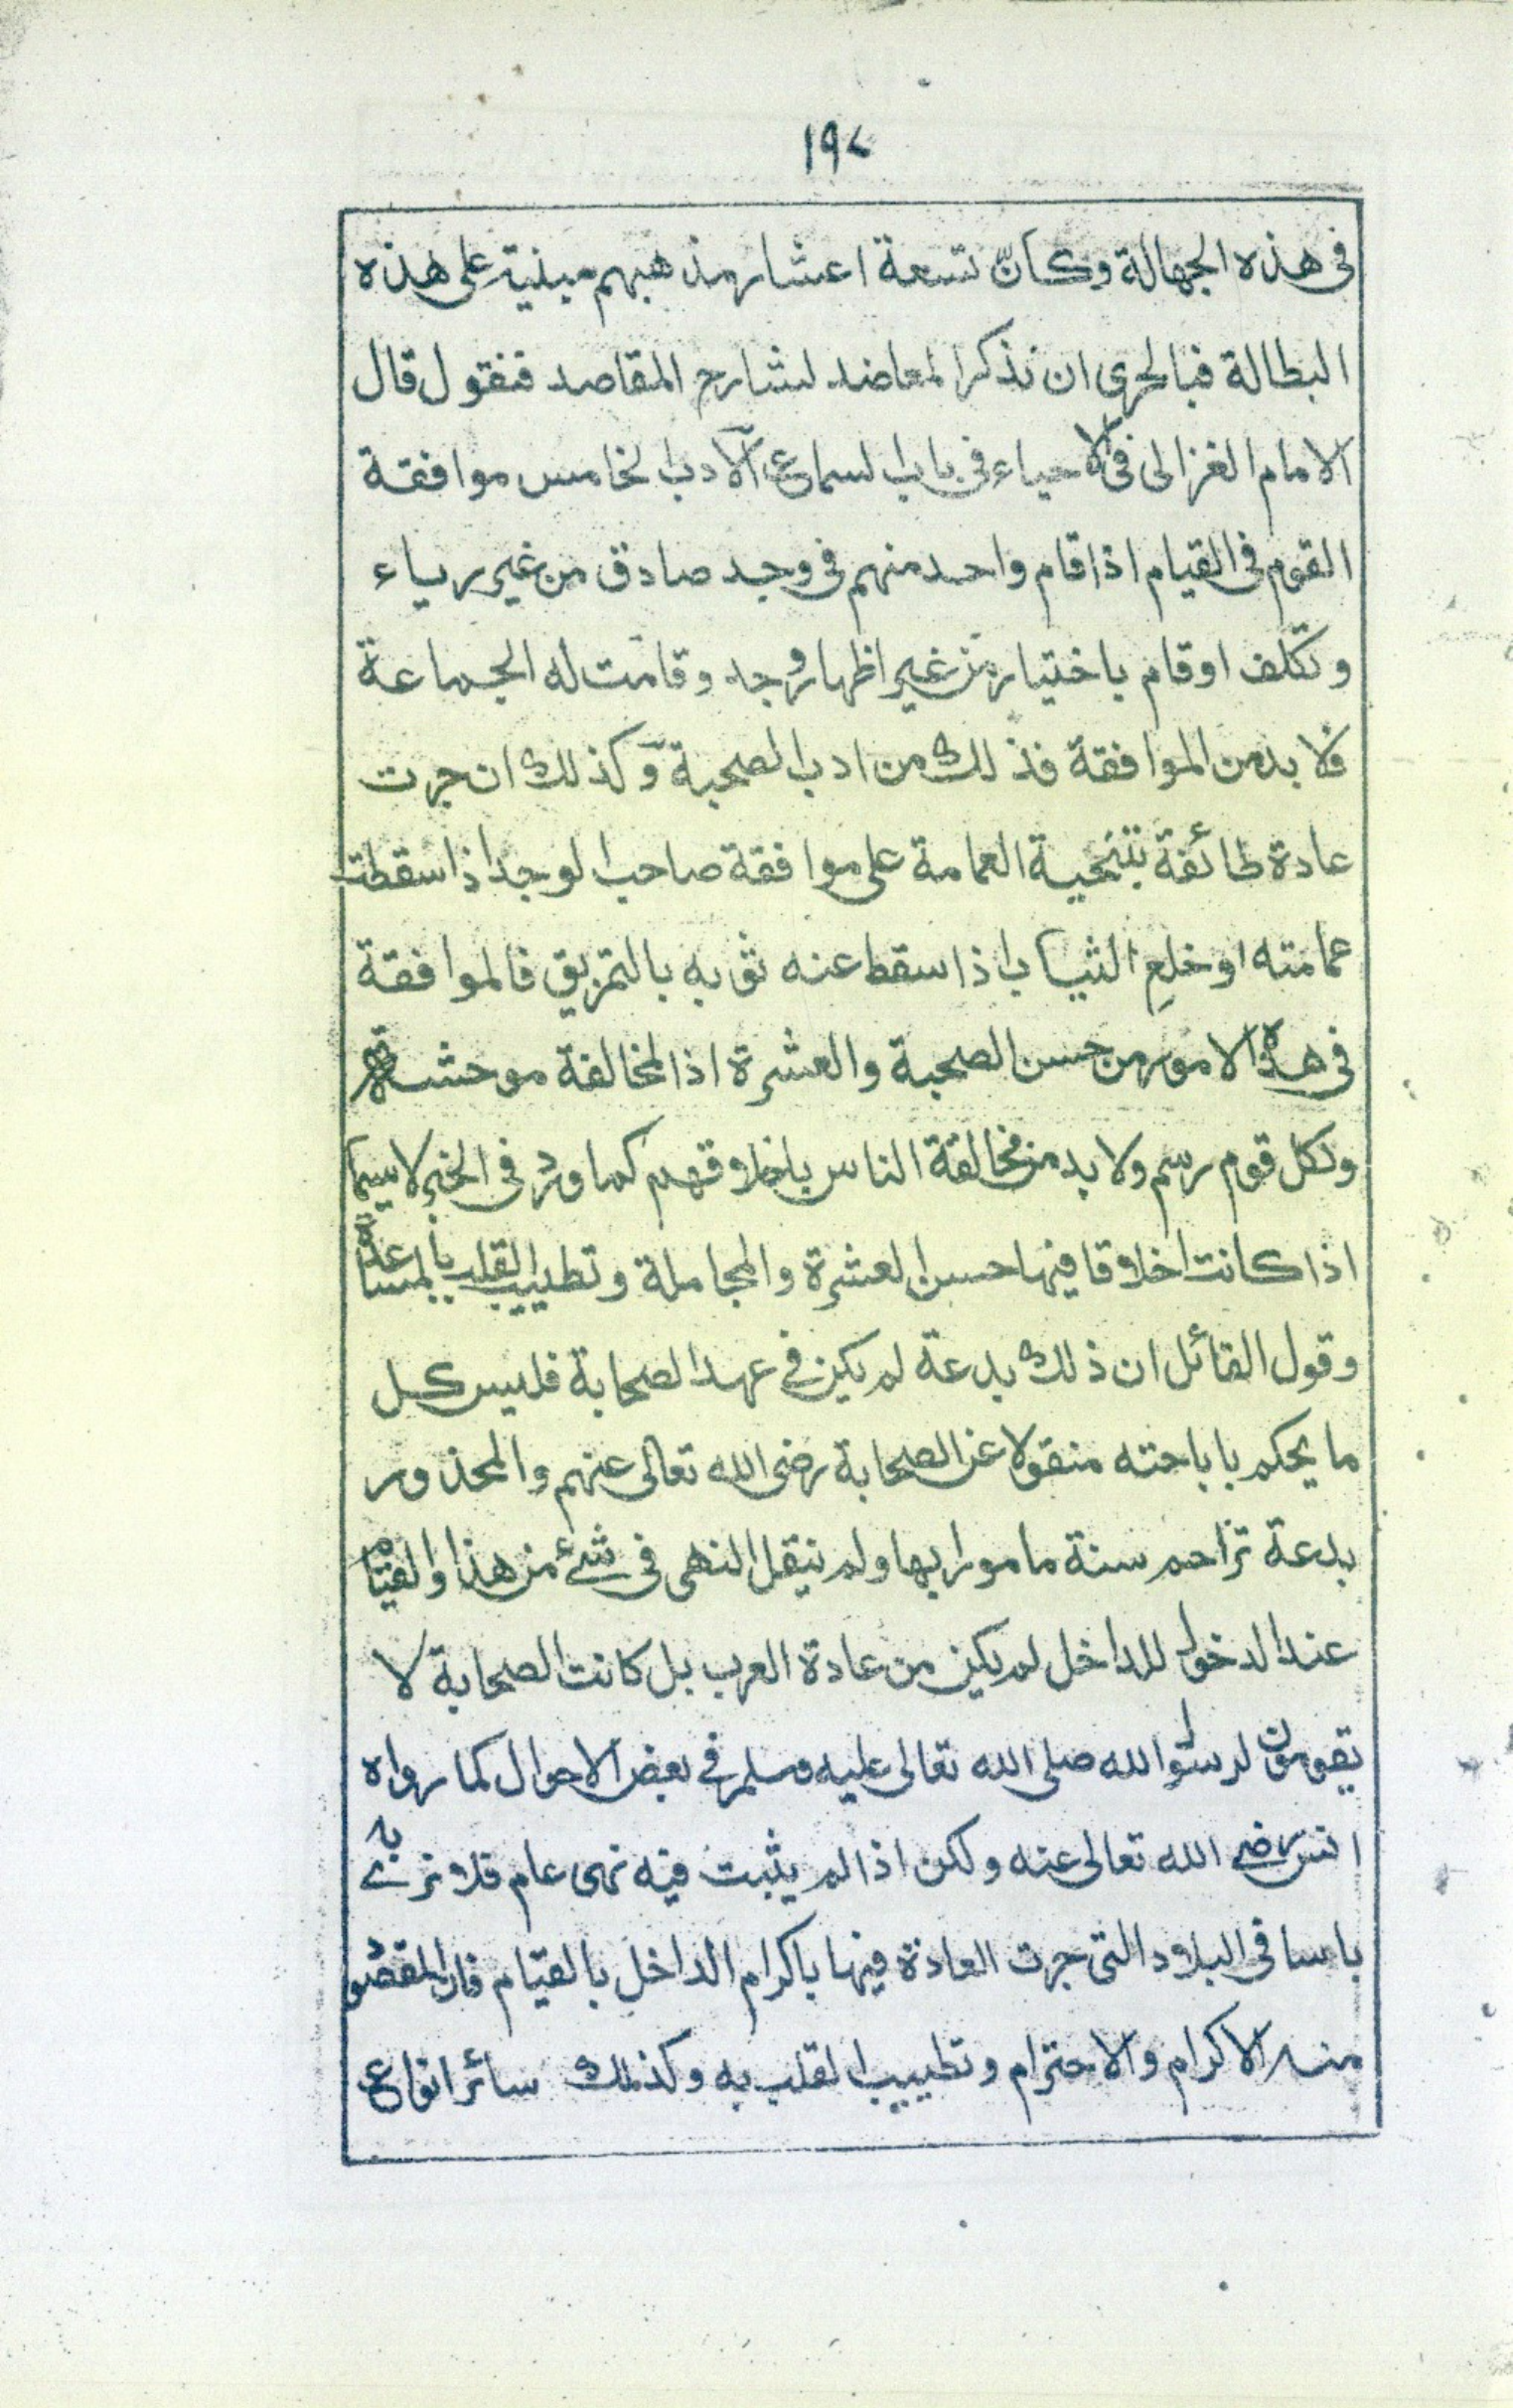 ١٩٧
فى هذه الجهالة وكانّ تسعة اعشار مذهبهم مبنية على هذه
البطالة فبالحرى ان نذكر المعاضد لشارح المقاصد فنقول قال
الامام الغزالى فى الاحياء فى باب السماع الادب الخامس موافقة
القوم فى القيام اذا قام واحد منهم فى وجد صادق من غير رياء
وتكلف او قام باختيار من غير اظهار وجد وقامت له الجماعة
فلا بد من الموافقة فذلك من ادب الصحبة وكذلك ان جرت
عادة طائفة بتنحية العمامة على موافقة صاحب الوجد اذا سقطت
عمامته او خلع الثياب اذا سقط عنه ثوبه بالتمزيق فالموافقة
فى هذه الامور من حسن الصحبة والعشرة اذ المخالفة موحشة
ولكل قوم رسم ولا بد من مخالقة الناس باخلاقهم كما ورد فى الخبر لاسيما
اذا كانت اخلاقا فيها حسن العشرة والمجاملة وتطييب القلب بالمساعدة
وقول القائل ان ذلك بدعة لم يكن فى عهد الصحابة فليس كل
ما يحكم باباحته منقولا عن الصحابة رضى الله تعالى عنهم والمحذور
بدعة تزاحم سنة مامورا بها ولم ينقل النهى فى شئ من هذا والقيام
عند الدخول للداخل لم يكن من عادة العرب بل كانت الصحابة لا
يقومون لرسول الله صلى الله تعالى عليه وسلم فى بعض الاحوال كما رواه
انس رضى الله تعالى عنه ولكن اذا لم يثبت فيه نهى عام فلا نرى به
باسا فى البلاد التى جرت العادة فيها باكرام الداخل بالقيام فان المقصود
منه الاكرام والاحترام وتطييب القلب به وكذلك سائر انواع